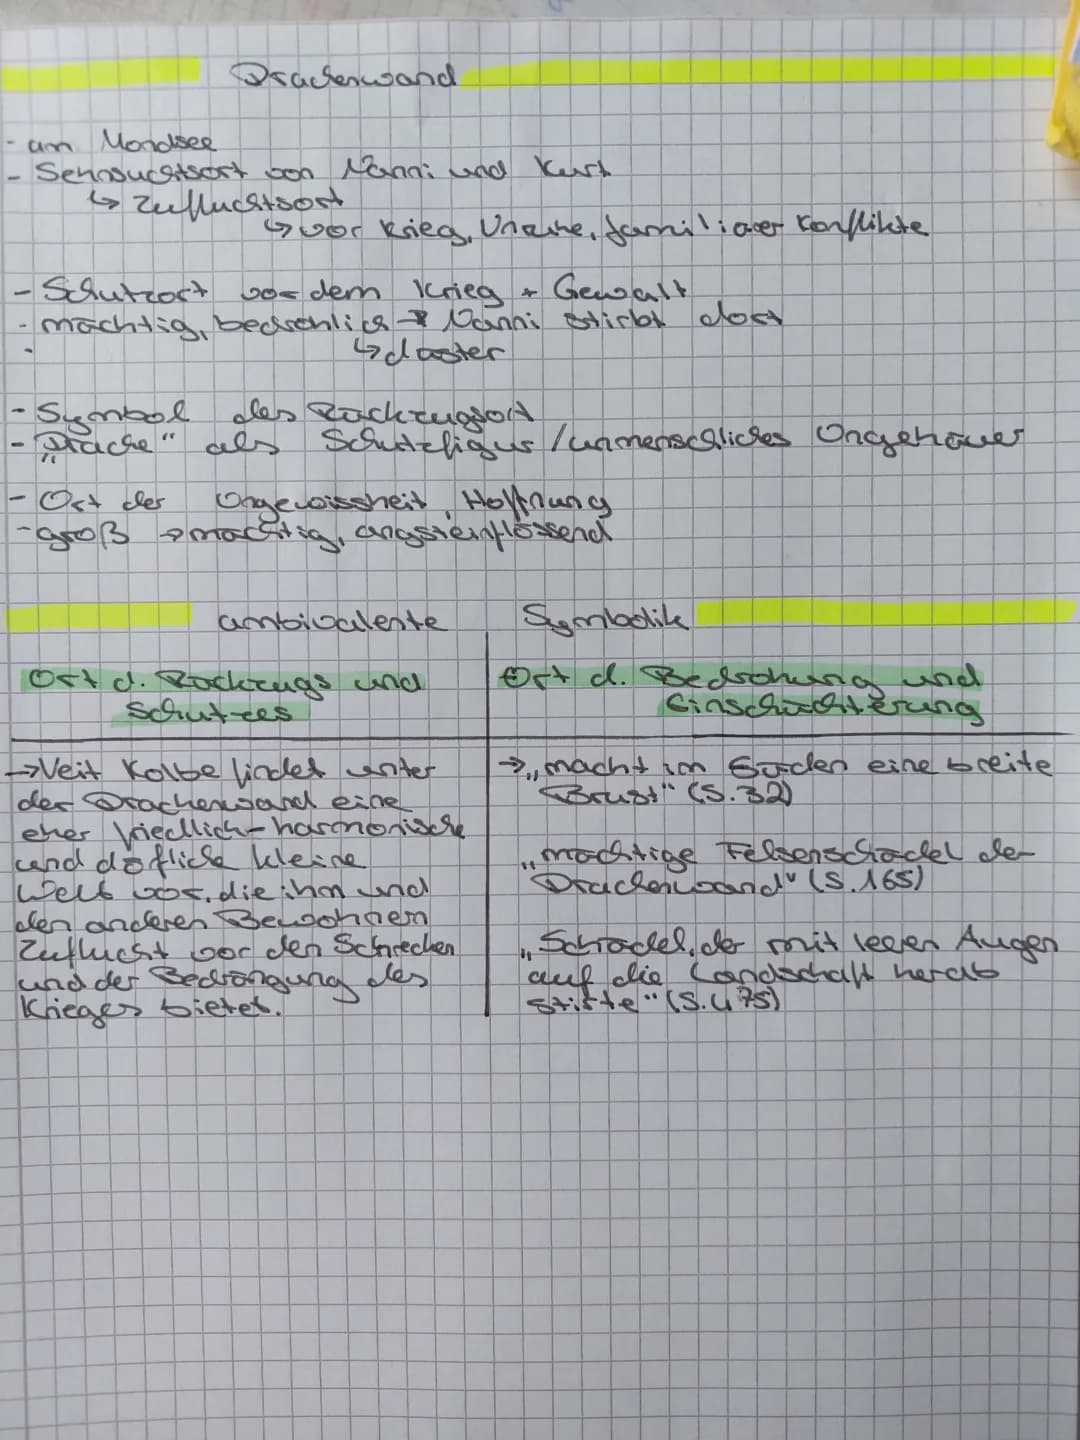 Drachenwand
- am Mondsee
- Sehnsuchtsort von Nanni und Kurt
↳ Zufluchtsort
↳ vor Krieg, Unruhe, familiärer Konflikte
- Schutzort vor dem Krieg + Gewalt
- mächtig, bedrohlich → Nanni stirbt dort
↳ düster
- Symbol des Rückzugsort
- „Drache" als Schutzfigur / unmenschliches Ungeheuer
- Ort der Ungewissheit, Hoffnung
- groß → mächtig, angsteinflössend
ambivalente Symbolik
Ort d. Rückzugs und
Schutzes
→ Veit Kolbe findet unter
der Drachenwand eine
eher friedlich-harmonische
und döfliche kleine
Welt vor, die ihm und
den anderen Bewohnern
Zuflucht vor den Schrecken
und der Bedrängung des
Krieges bietet.
Ort d. Bedrohung und
Einschüchterung
→ „macht im Süden eine breite
Brust" (S. 32)
„mächtige Felsenschädel der
Drachenwand" (S. 165)
„Schädel, der mit leeren Augen
auf die Landschaft herab
stirte" (S. 475)